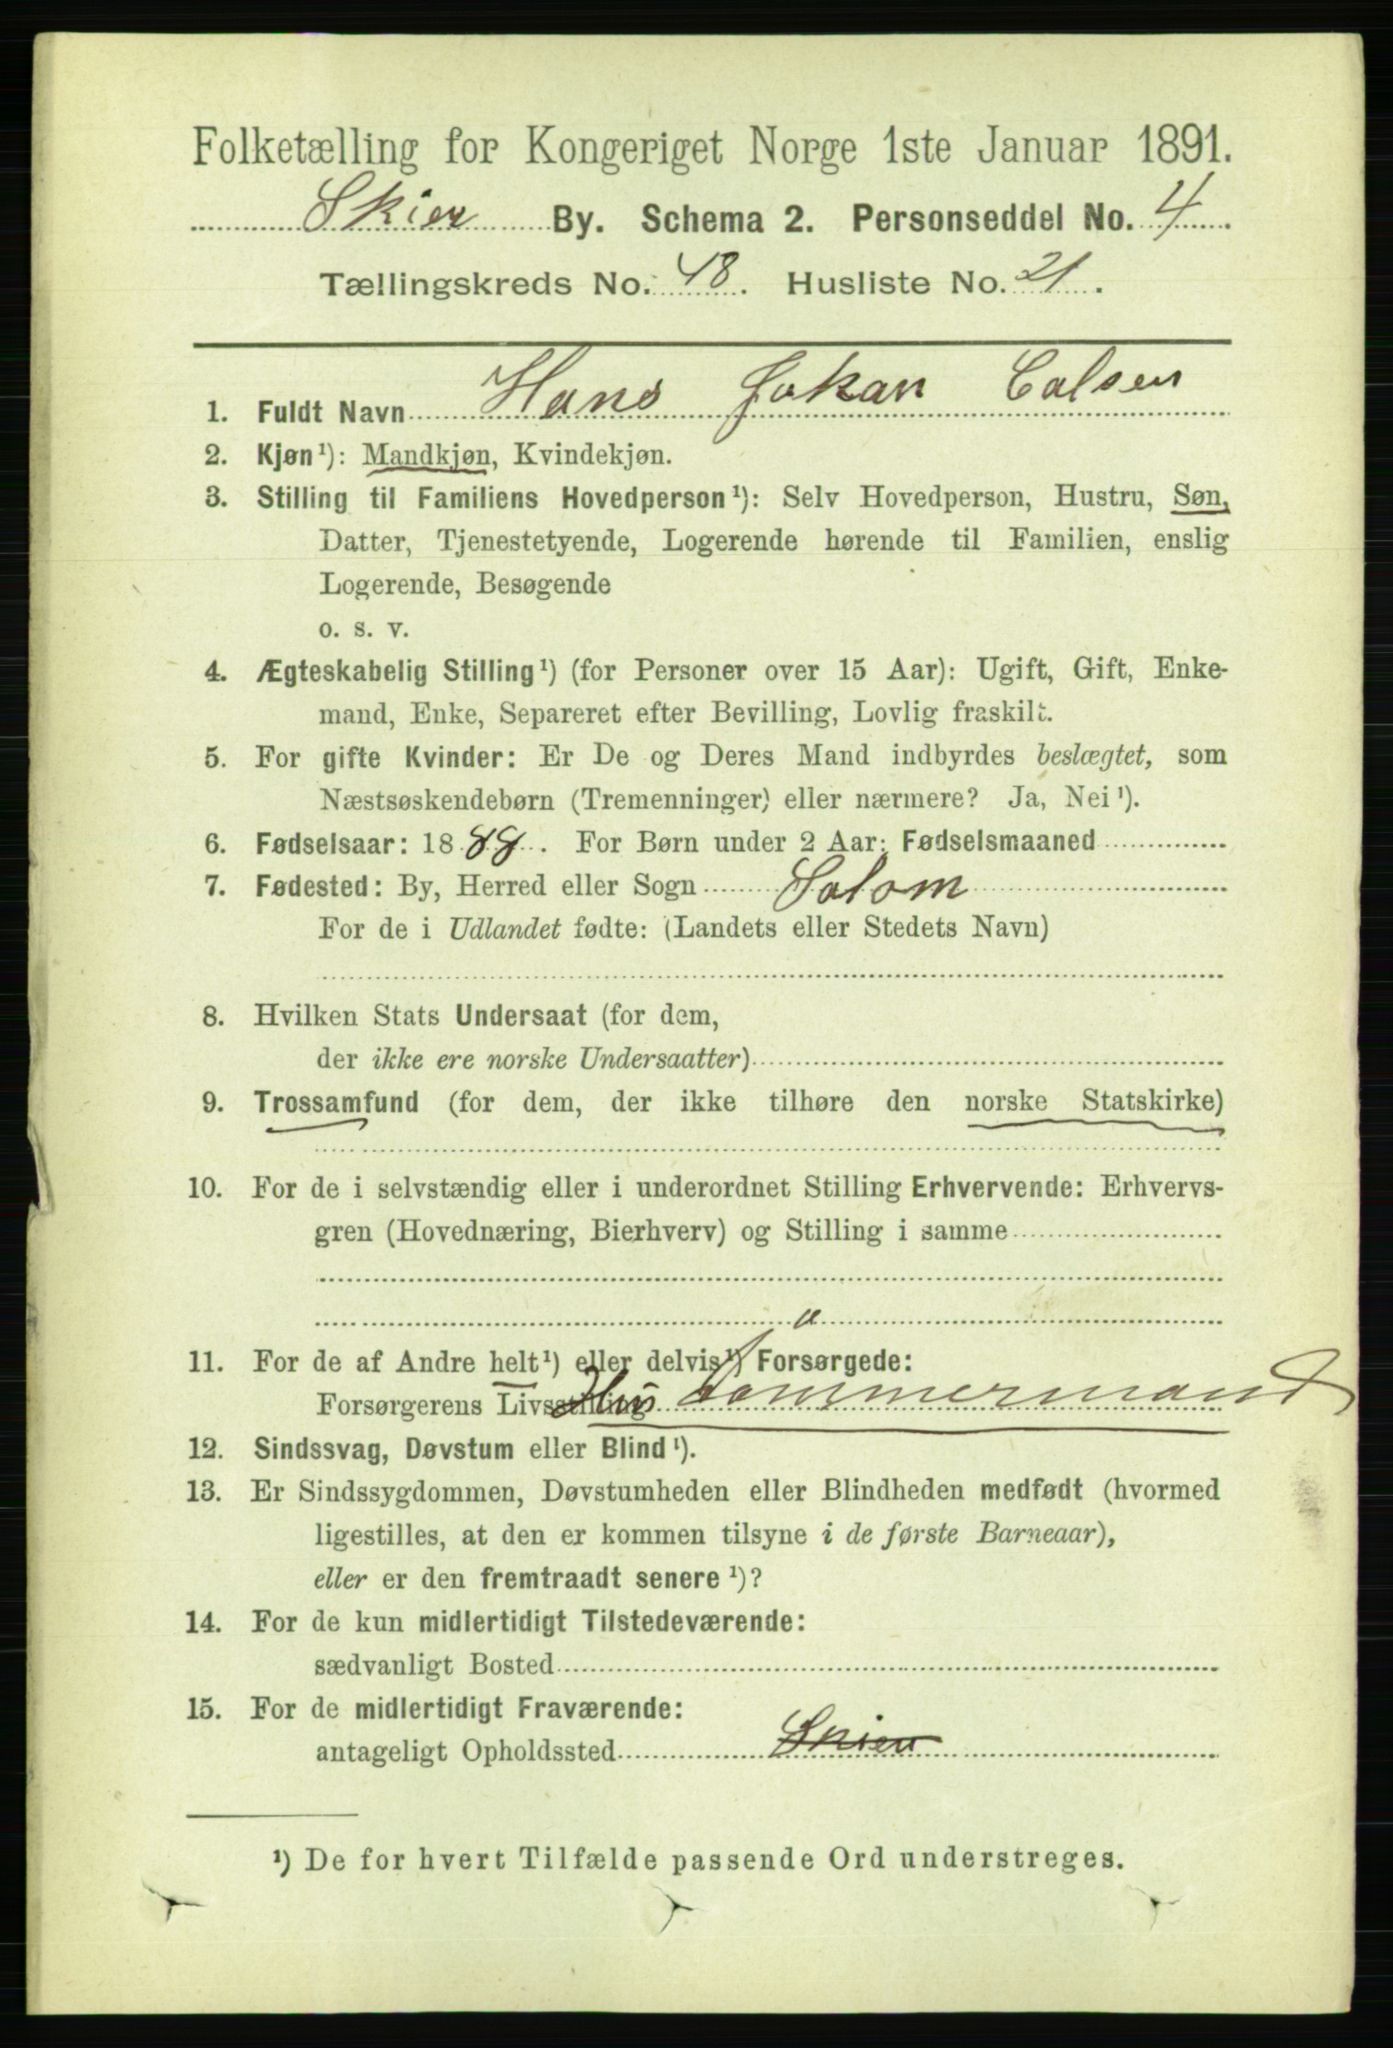 Folketælling for Kongeriget Norge 1ste Januar 1891.
Skien By. Schema 2. Personseddel No. 4.
Tællingskreds No. 48. Husliste No. 21.
1. Fuldt Navn Hans Johan Colsen
2. Kjøn¹): Mandkjøn, Kvindekjøn.
3. Stilling til Familiens Hovedperson¹): Selv Hovedperson, Hustru, Søn,
Datter, Tjenestetyende, Logerende hørende til Familien, enslig
Logerende, Besøgende
o. s. v.
4. Ægteskabelig Stilling¹) (for Personer over 15 Aar): Ugift, Gift, Enke-
mand, Enke, Separeret efter Bevilling, Lovlig fraskilt.
5. For gifte Kvinder: Er De og Deres Mand indbyrdes beslægtet, som
Næstsøskendebørn (Tremenninger) eller nærmere? Ja, Nei¹).
6. Fødselsaar: 1888. For Børn under 2 Aar: Fødselsmaaned
7. Fødested: By, Herred eller Sogn Solom
For de i Udlandet fødte: (Landets eller Stedets Navn)
8. Hvilken Stats Undersaat (for dem,
der ikke ere norske Undersaatter)
9. Trossamfund (for dem, der ikke tilhøre den norske Statskirke)
10. For de i selvstændig eller i underordnet Stilling Erhvervende: Erhvervs-
gren (Hovednæring, Bierhverv) og Stilling i samme
11. For de af Andre helt¹) eller delvis¹) Forsørgede:
Forsørgerens Livsstilling Hustømmermand
12. Sindssvag, Døvstum eller Blind¹).
13. Er Sindssygdommen, Døvstumheden eller Blindheden medfødt (hvormed
ligestilles, at den er kommen tilsyne i de første Barneaar),
eller er den fremtraadt senere¹)?
14. For de kun midlertidigt Tilstedeværende:
sædvanligt Bosted
15. For de midlertidigt Fraværende:
antageligt Opholdssted Skien
¹) De for hvert Tilfælde passende Ord understreges.